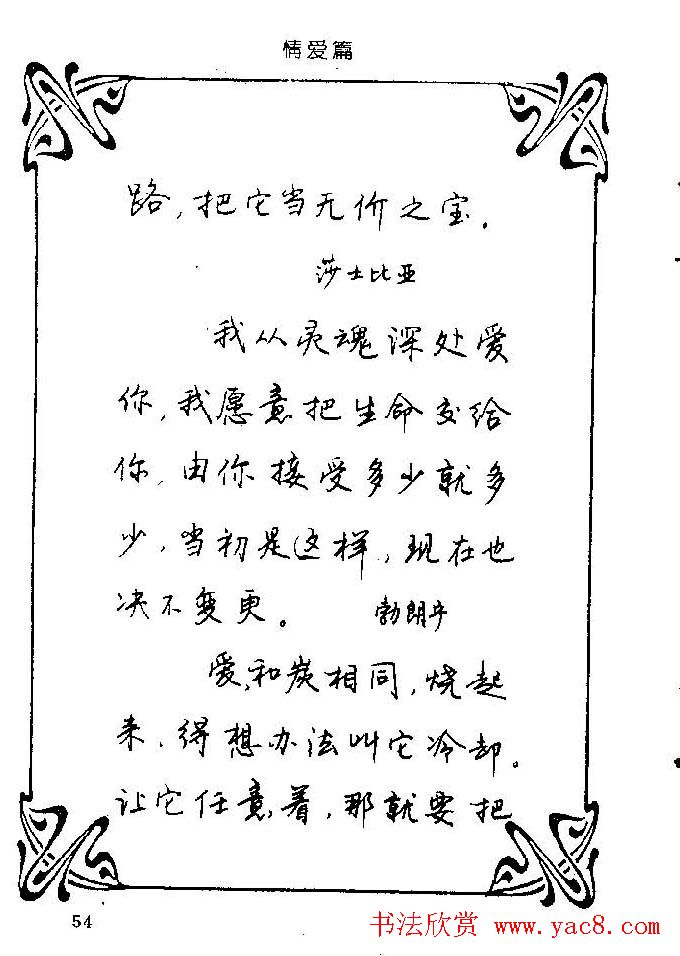 情爱篇
路，把它当无价之宝．
莎士比亚
我从灵魂深处爱
你，我愿意把生命交给
你，由你接受多少就多
少，当初是这样，现在也
决不变更。 勃朗宁
爱，和炭相同，烧起
来，得想办法叫它冷却。
让它任意，着，那就要把
54
书法欣赏 www.yac8.com